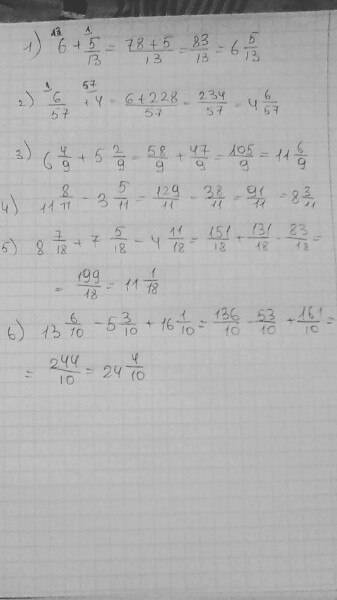 1) 6 + 5/13 = 78 + 5/13 = 83/13 = 6 5/13
2) 6/57 + 4 = 6 + 228/57 = 234/57 = 4 6/57
3) 6 4/9 + 5 2/9 = 58/9 + 47/9 = 105/9 = 11 6/9
4) 11 8/11 - 3 5/11 = 129/11 - 38/11 = 91/11 = 8 3/11
5) 8 7/18 + 7 5/18 - 4 11/18 = 151/18 + 131/18 - 83/18 =
= 199/18 = 11 1/18
6) 13 6/10 - 5 3/10 + 16 1/10 = 136/10 - 53/10 + 161/10 =
= 244/10 = 24 4/10